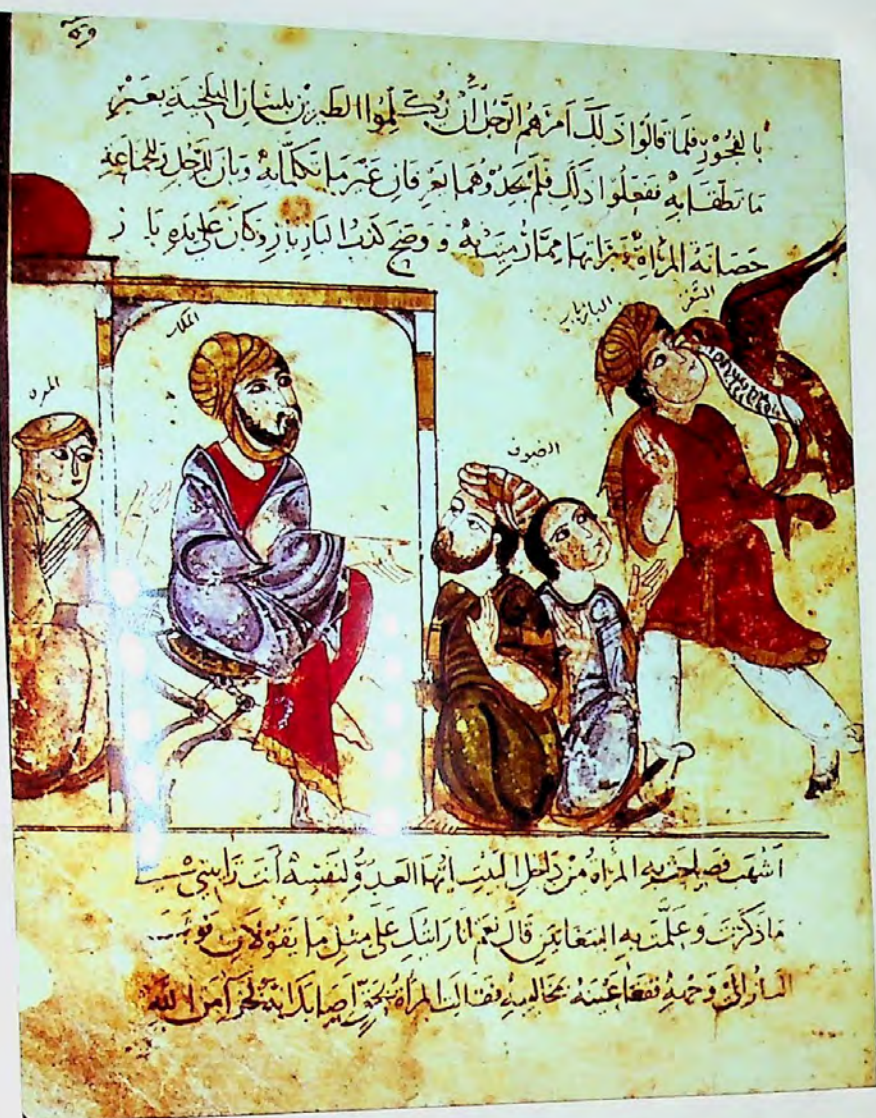 بالفجور فلما قالوا ذلك امرهم الرجل ان يكلموا الطيرين بلسان البلخية بغير
ما نطقا به ففعلوا ذلك فلم يجدوهما يعرفان غير ما تكلما به وبان للرجل وللجماعة
حصانة المراة وبراتها مما رميت به ووضح كذب البازيار وكان على يده باز
الملك
المره
الضيوف
البازيار
اشهب فصاحت به المراة من داخل البيت ايها العدو لنفسه انت رايتني
ما ذكرت وعلمت به الببغاتين قال نعم انا رايتك على مثل ما يقولان فوثب
الباز الى وجهه ففقا عينيه بمخالبه فقالت المراة بحق اصابك انه لجزا من الله